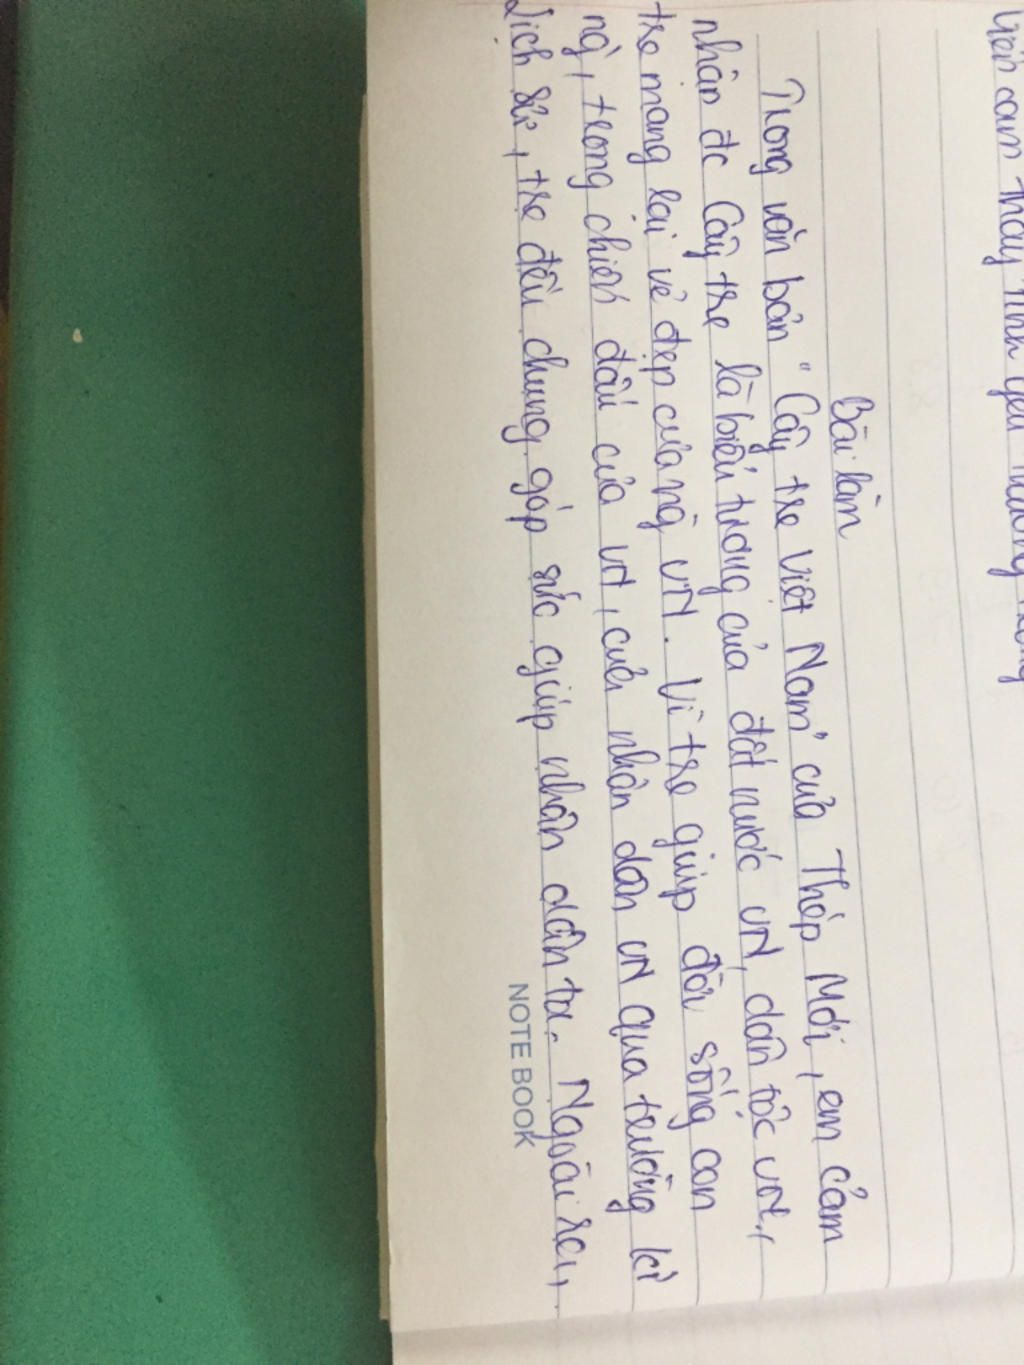 thấy tình yêu
Bài làm
Trong văn bản "Cây tre Việt Nam" của Thép Mới, em cảm
nhận đc Cây tre là biểu tượng của đất nước VN, dân tộc VN,
tre mang lại vẻ đẹp của ng VN. Vì tre giúp đời sống con
ng, trong chiến đấu của VN, của nhân dân VN qua trường kì
lịch sử, tre đều chung góp sức giúp nhân dân ta. Ngoài ra,
NOTE BOOK